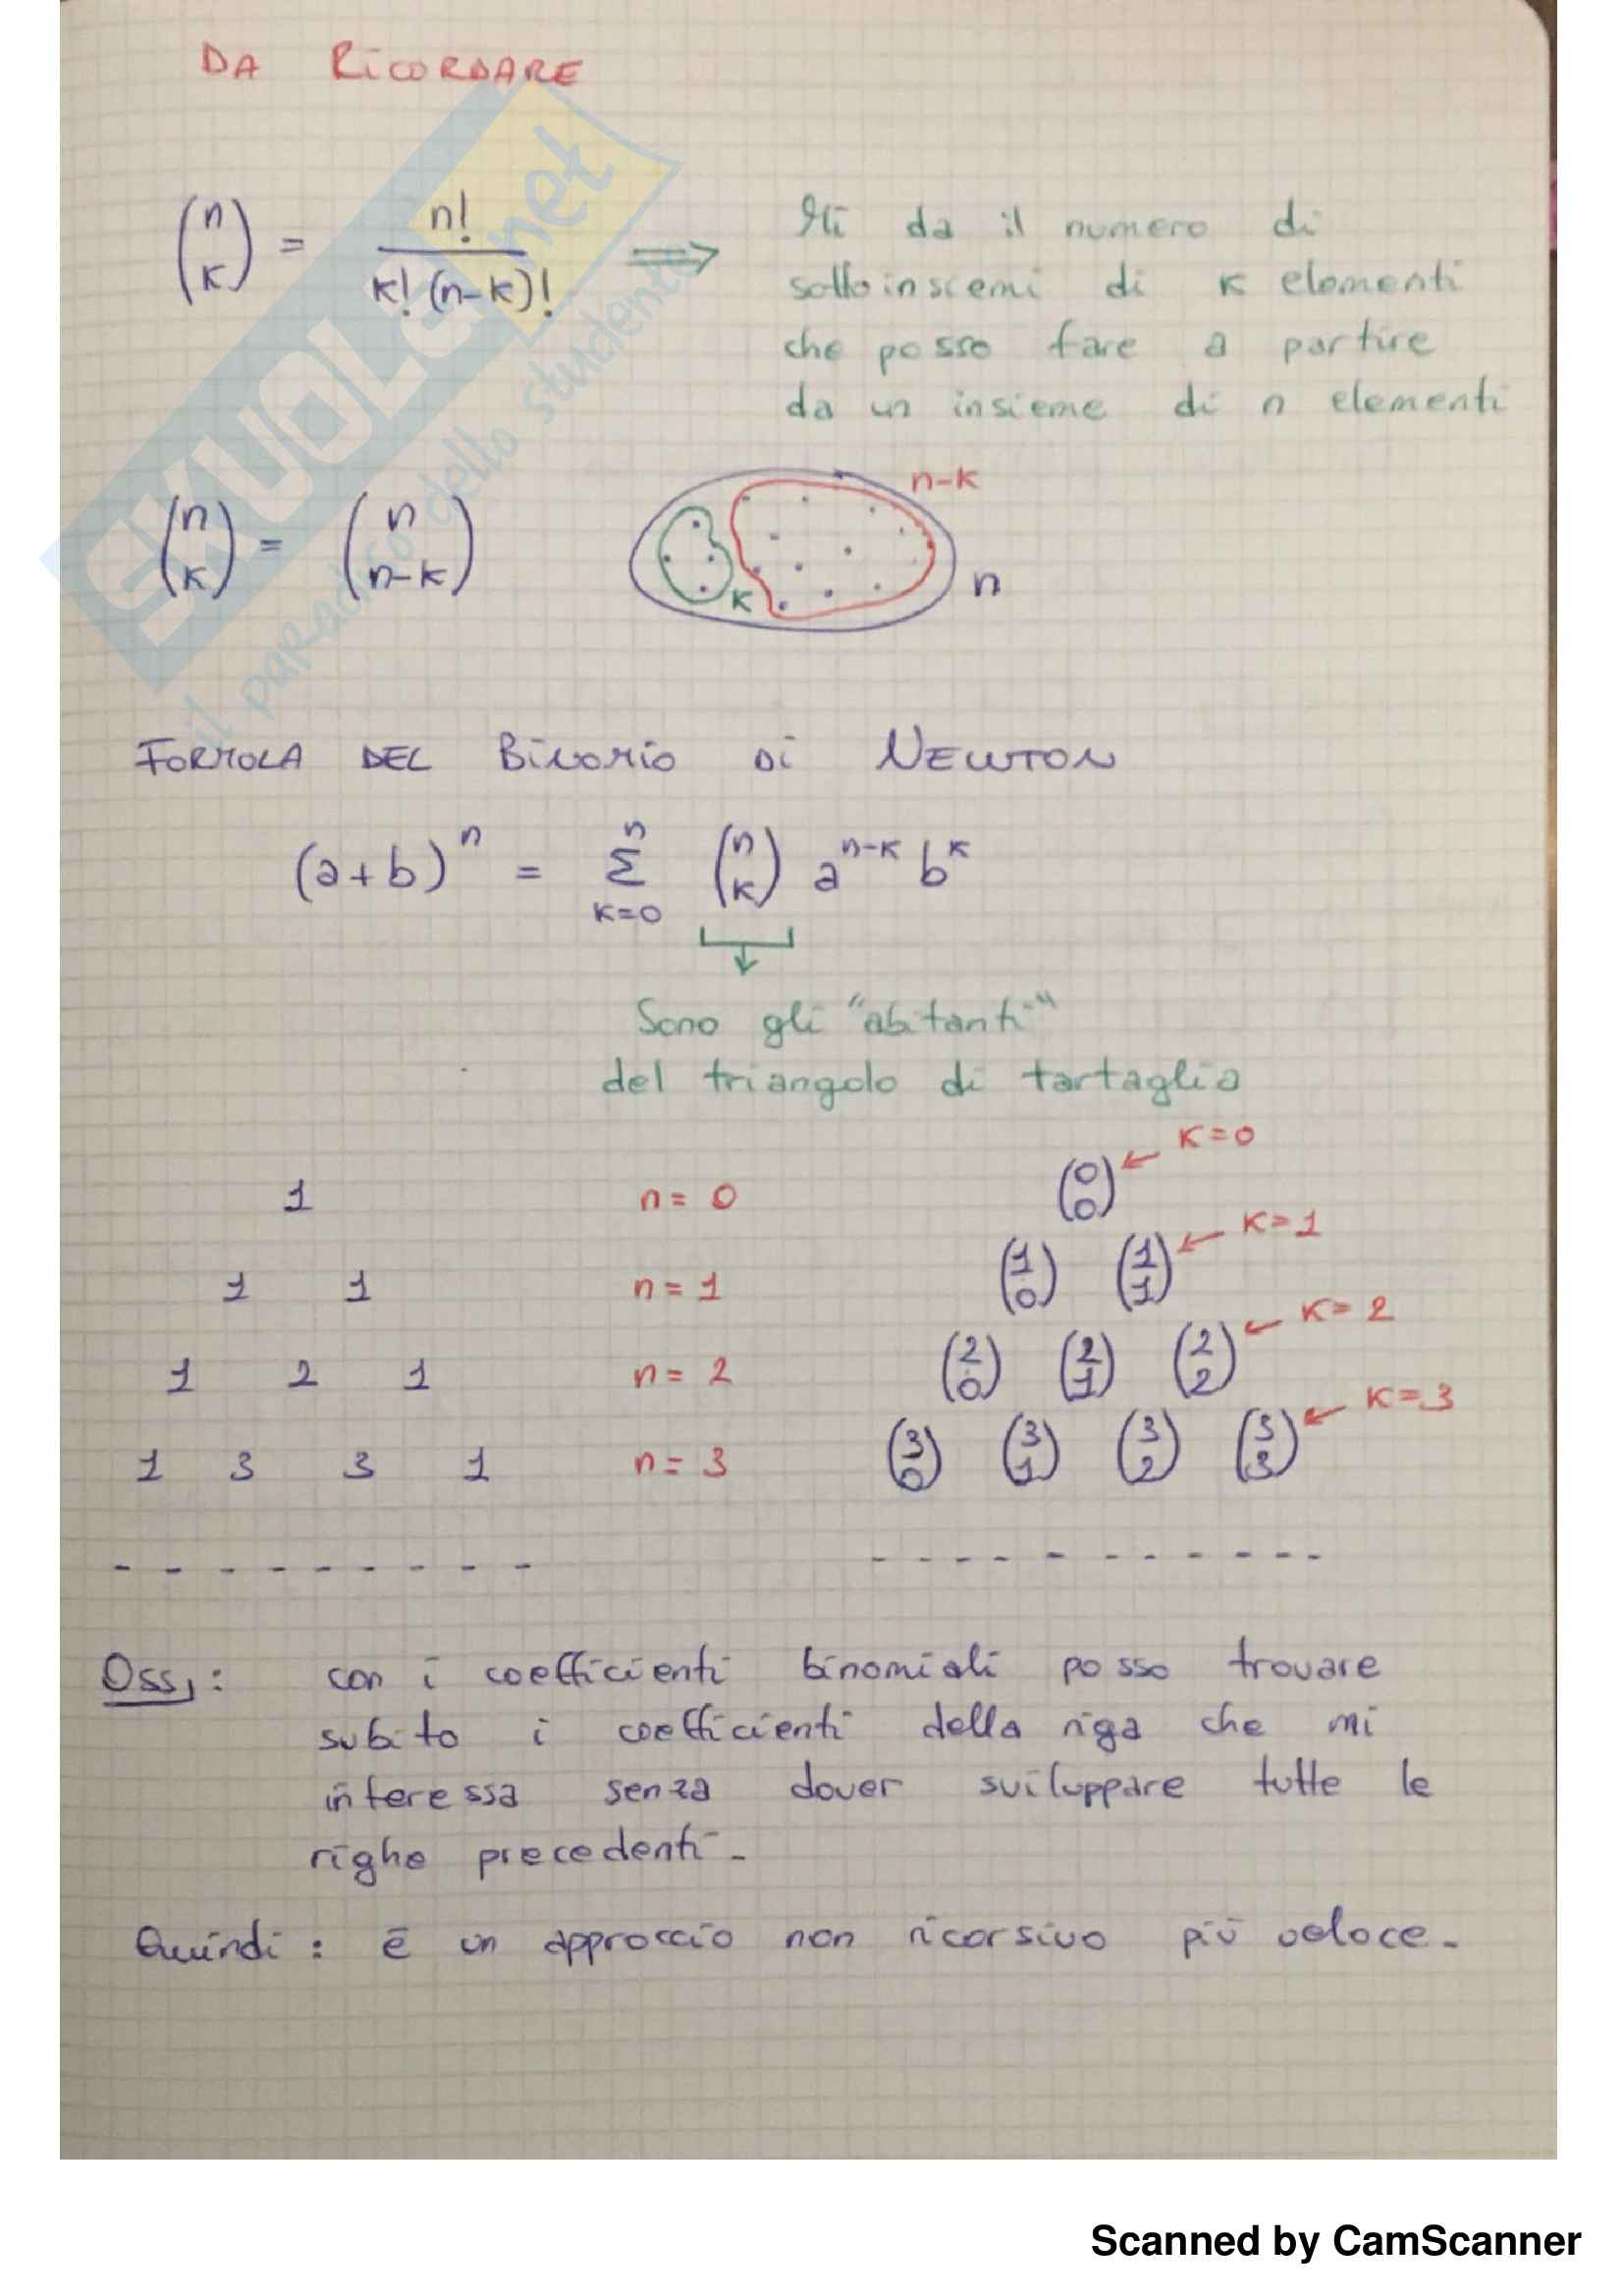 DA RICORDARE
(n k) = n! / k! (n-k)! ⟹ Mi da il numero di
sottoinsiemi di k elementi
che posso fare a partire
da un insieme di n elementi
(n k) = (n n-k)
n-k
k
n
FORMULA DEL BINOMIO DI NEWTON
(a+b)^n = Σ_{k=0}^{n} (n k) a^{n-k} b^k
Sono gli "abitanti"
del triangolo di tartaglia
1 n = 0 (0 0) ← k=0
1 1 n = 1 (1 0) (1 1) ← k=1
1 2 1 n = 2 (2 0) (2 1) (2 2) ← k=2
1 3 3 1 n = 3 (3 0) (3 1) (3 2) (3 3) ← k=3
Oss,: con i coefficienti binomiali posso trovare
subito i coefficienti della riga che mi
interessa senza dover sviluppare tutte le
righe precedenti.
Quindi: è un approccio non ricorsivo più veloce.
SKUOLA.net
il paradiso dello studente
Scanned by CamScanner